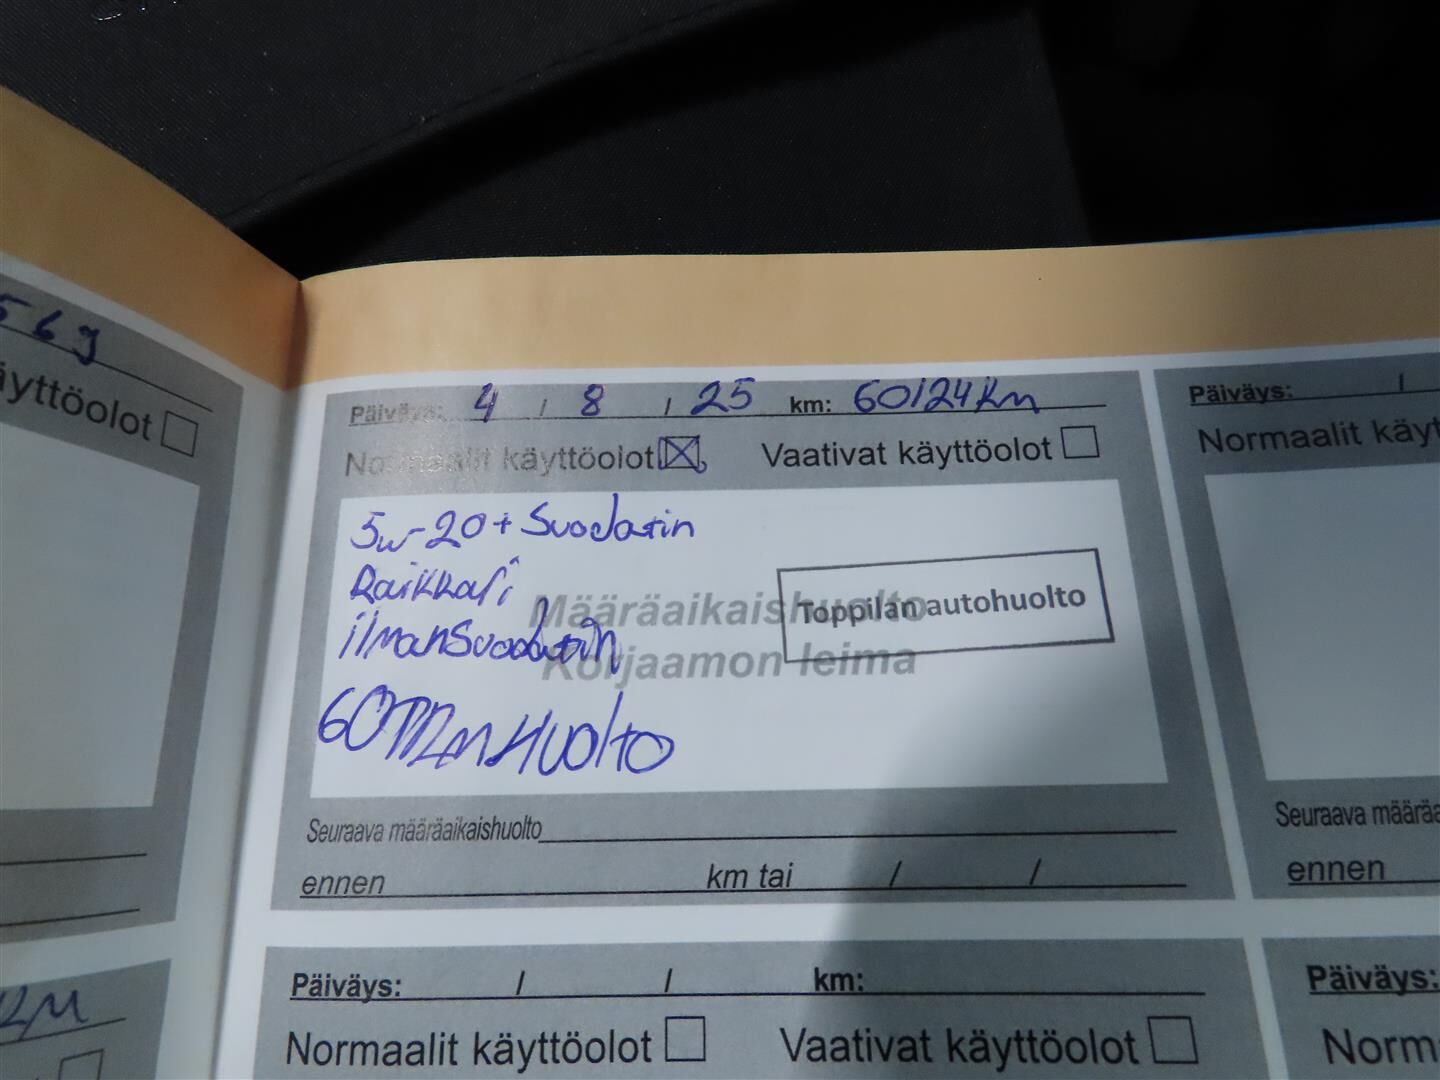 569
äyttöolot
Päiväys: 4 / 8 / 25 km: 60124km
Normaalit käyttöolot Vaativat käyttöolot
5w-20 + Suodatin
Raikkari
ilmansuodatin
Määräaikaishuolto
Korjaamon leima
Toppilan autohuolto
60TKm Huolto
Seuraava määräaikaishuolto
ennen km tai / /
Päiväys: / / km:
Normaalit käyttöolot Vaativat käyttöolot
Päiväys: /
Normaalit käyt
Seuraava määräa
ennen
Päiväys:
Norm
KM